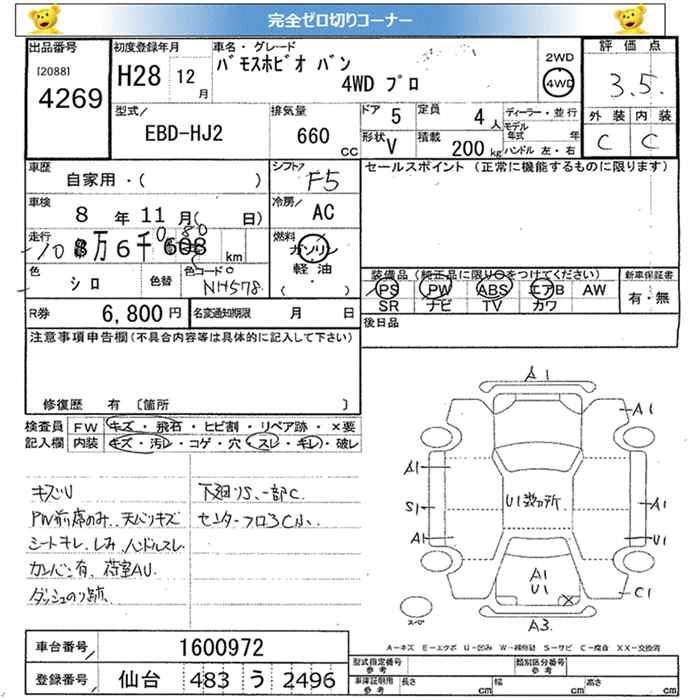 完全ゼロ切りコーナー
出品番号
[2088]
4269
初度登録年月
H28 12 月
車名・グレード
バモスホビオ バン
4WD プロ
2WD
4WD
評価点
3.5.
型式/
EBD-HJ2
排気量
660 cc
ドア 5
定員 4 人
形状 V
積載 200 kg
ディーラー・並行
モデル年式 年
ハンドル 左・右
外装 内装
C C
車歴
自家用・( )
シフト/
F5
車検
8 年 11 月( 日)
冷房/
AC
走行
10 万 6 千 km
燃料
ガソリン
軽油
( ・ )
色
シロ
色替
色コードo
NH578
R券 6,800 円
名変通知期限 月 日
セールスポイント (正常に機能するものに限ります)
装備品 (純正品に限り○をつけてください)
PS PW ABS エアB AW
SR ナビ TV カワ
新車保証書
有・無
後日品
注意事項申告欄(不具合内容等は具体的に記入して下さい)
修復歴 有 〔箇所 〕
検査員記入欄
FW キズ・飛石・ヒビ割・リペア跡・×要
内装 キズ・汚レ・コゲ・穴・スレ・キレ・破レ
キズU
PW前席のみ、天バリキズ
シートキレ、しみ、ハンドルスレ
カンバン有、荷室AU
ダッシュのり跡、
下廻りS、一部C
センターフロアC小、
A1
A1
A1 A1
S1 U1数ヵ所
A1 U1
A1
U1
C1
スペア
A3
A-キズ E-エクボ U-凹み W-補修跡 S-サビ C-腐食 XX-交換済
車台番号 1600972
登録番号 仙台 483 う 2496
型式指定番号 参考
類別区分番号 参考
車庫証明用 参考
長さ cm
幅 cm
高さ cm